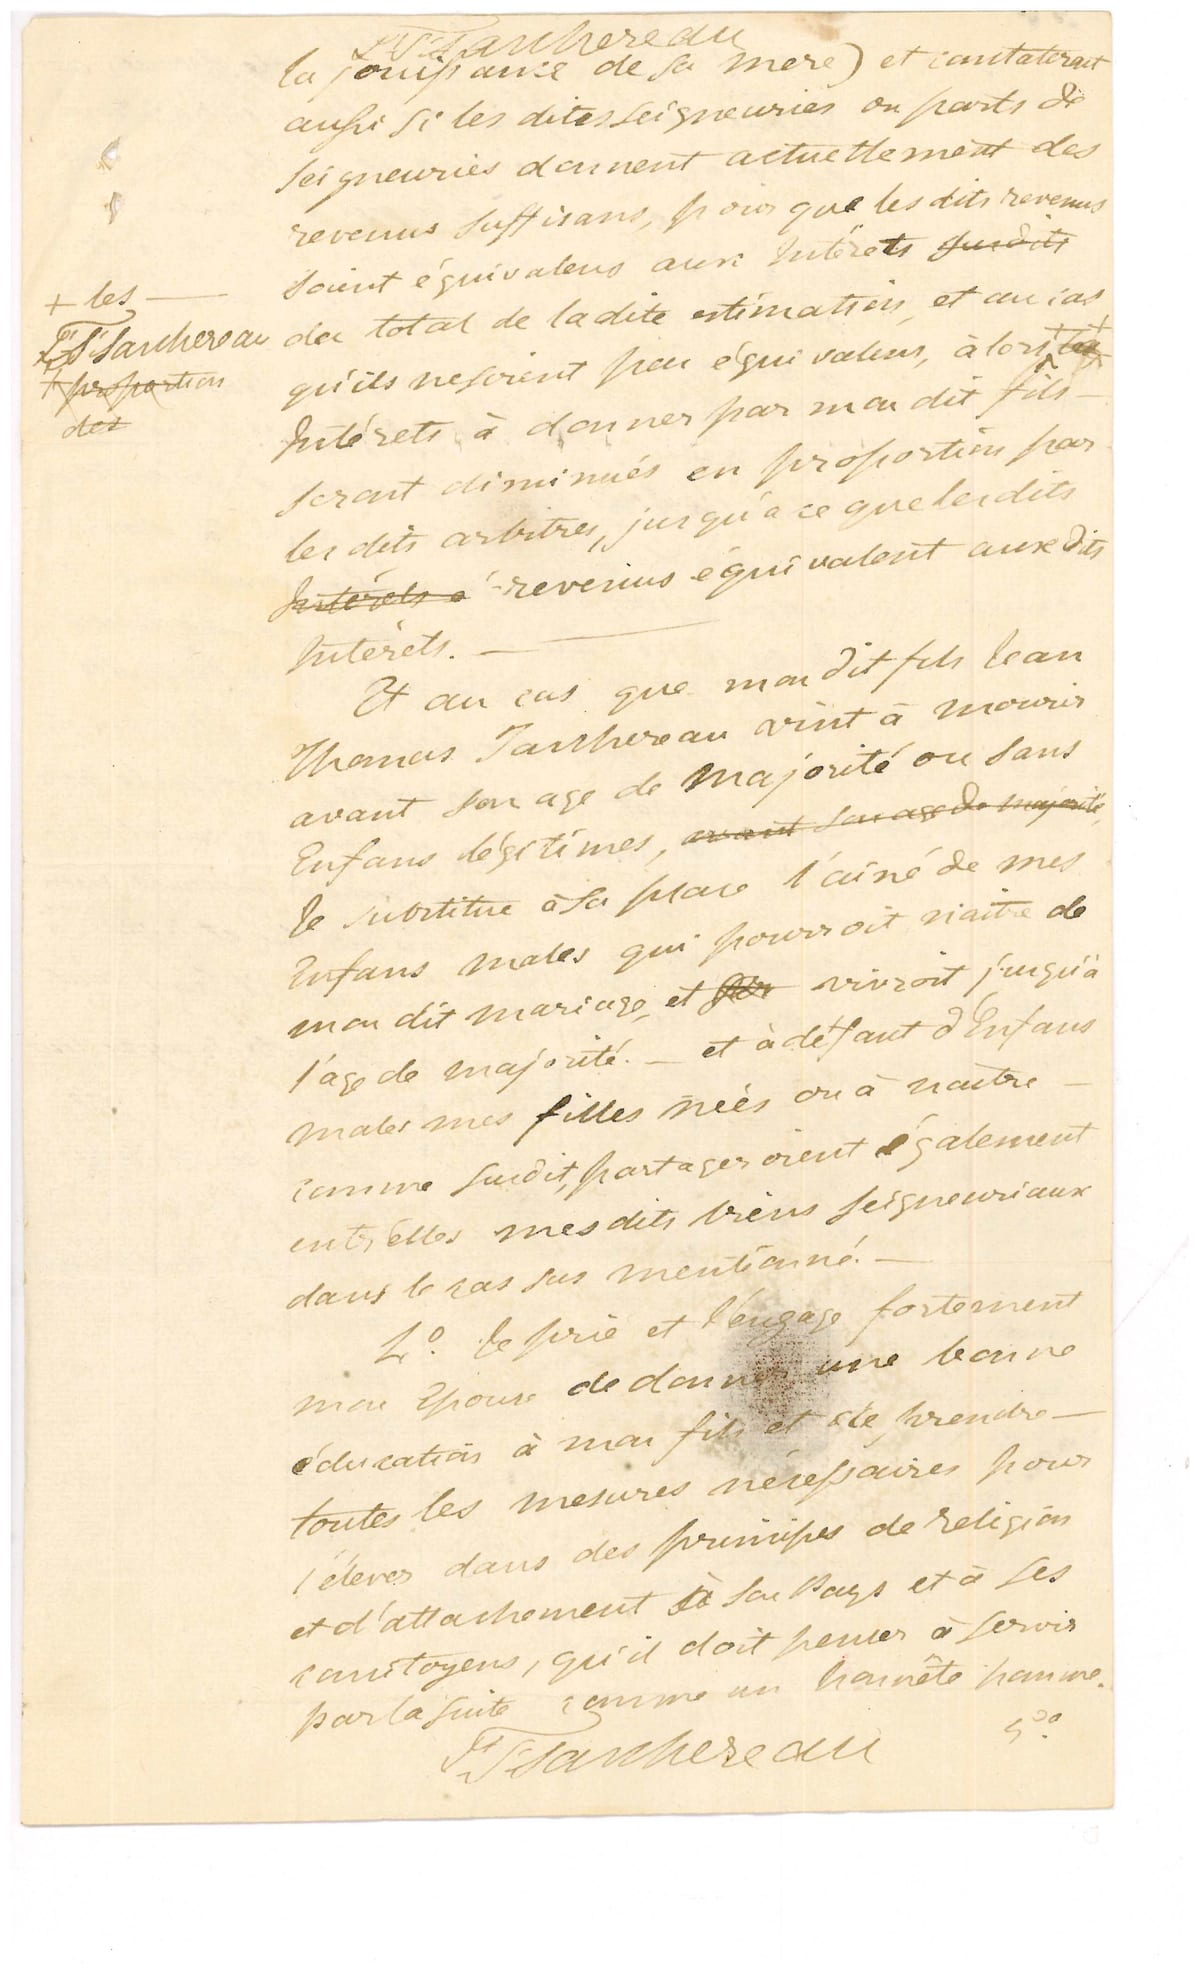 P T Taschereau
la jouissance de sa mere) et constateront
aussi si les dites seigneuries ou parts de
seigneuries donnent actuellement des
revenus suffisans, pour que les dits revenus
soient équivalens aux Intérets susdits
du total de la dite estimation, et au cas
qu'ils ne soient pas équivalens, à lors + les
+ les
P T Taschereau
+ proportion
des
Intérets à donner par mon dit fils
seront diminués en proportion par
les dits arbitres, jusqu'à ce que les dits
Intérets e revenus équivalent aux dits
Intérets.
Et au cas que mon dit fils Jean
Thomas Taschereau vint à mourir
avant son age de majorité ou sans
Enfans légitimes, avant son age de majorité,
Je substitue à sa place l'ainé de mes
Enfans males qui pourroit naitre de
mon dit mariage, et vivroit jusqu'à
l'age de majorité. — et à défaut d'Enfans
males mes filles neés ou à naitre —
comme susdit, partageroient également
entr'elles mes dits biens seigneuriaux
dans le cas sus mentionné. —
4.° Je prie et l'engage fortement
mon Epouse de donner une bonne
éducation à mon fils et de prendre —
toutes les mesures nécessaires pour
l'élever dans des principes de religion
et d'attachement à son Pays et à ses
concitoyens, qu'il doit penser à servir
par la suite comme un honnête homme.
P T Taschereau
5°.